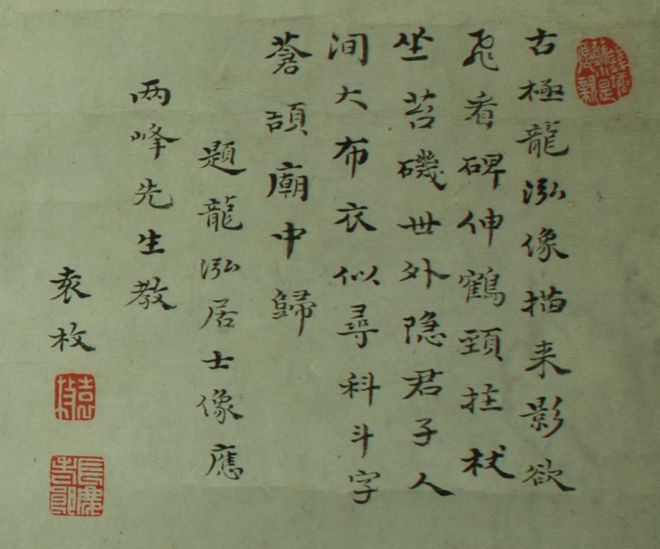 古極龍泓像描来影欲
飛看碑伸鶴頸拄杖
坐苔磯世外隐君子人
间大布衣似尋科斗字
蒼頡廟中歸
題龍泓居士像應
两峰先生教
袁枚
袁枚